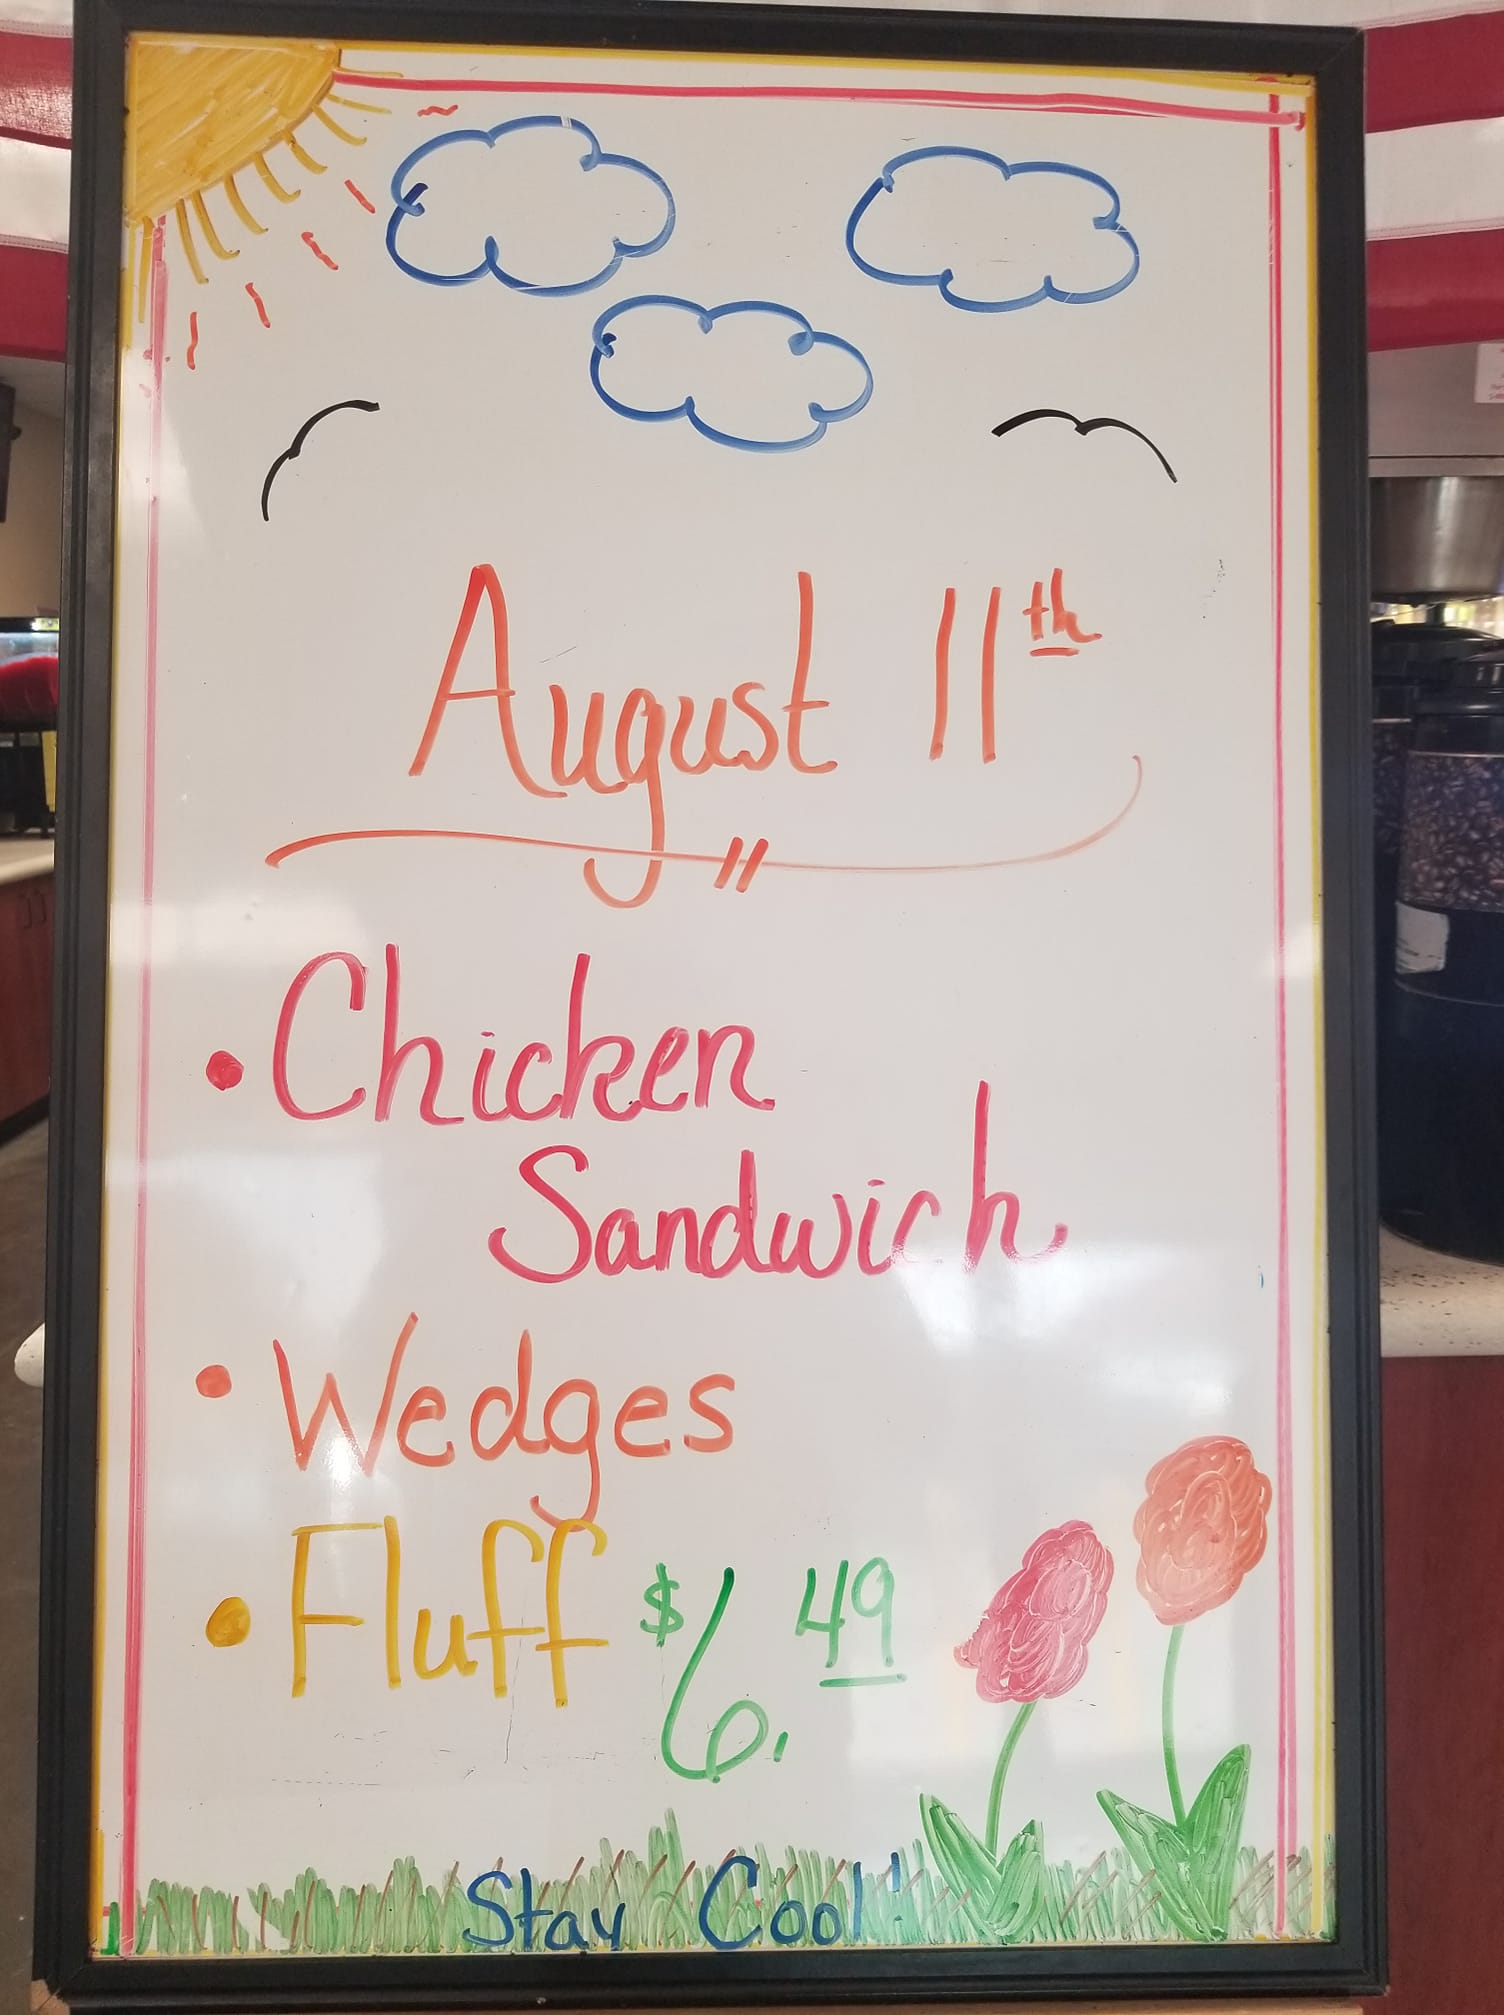 August 11th
• Chicken
Sandwich
• Wedges
• Fluff $6.49
Stay Cool!